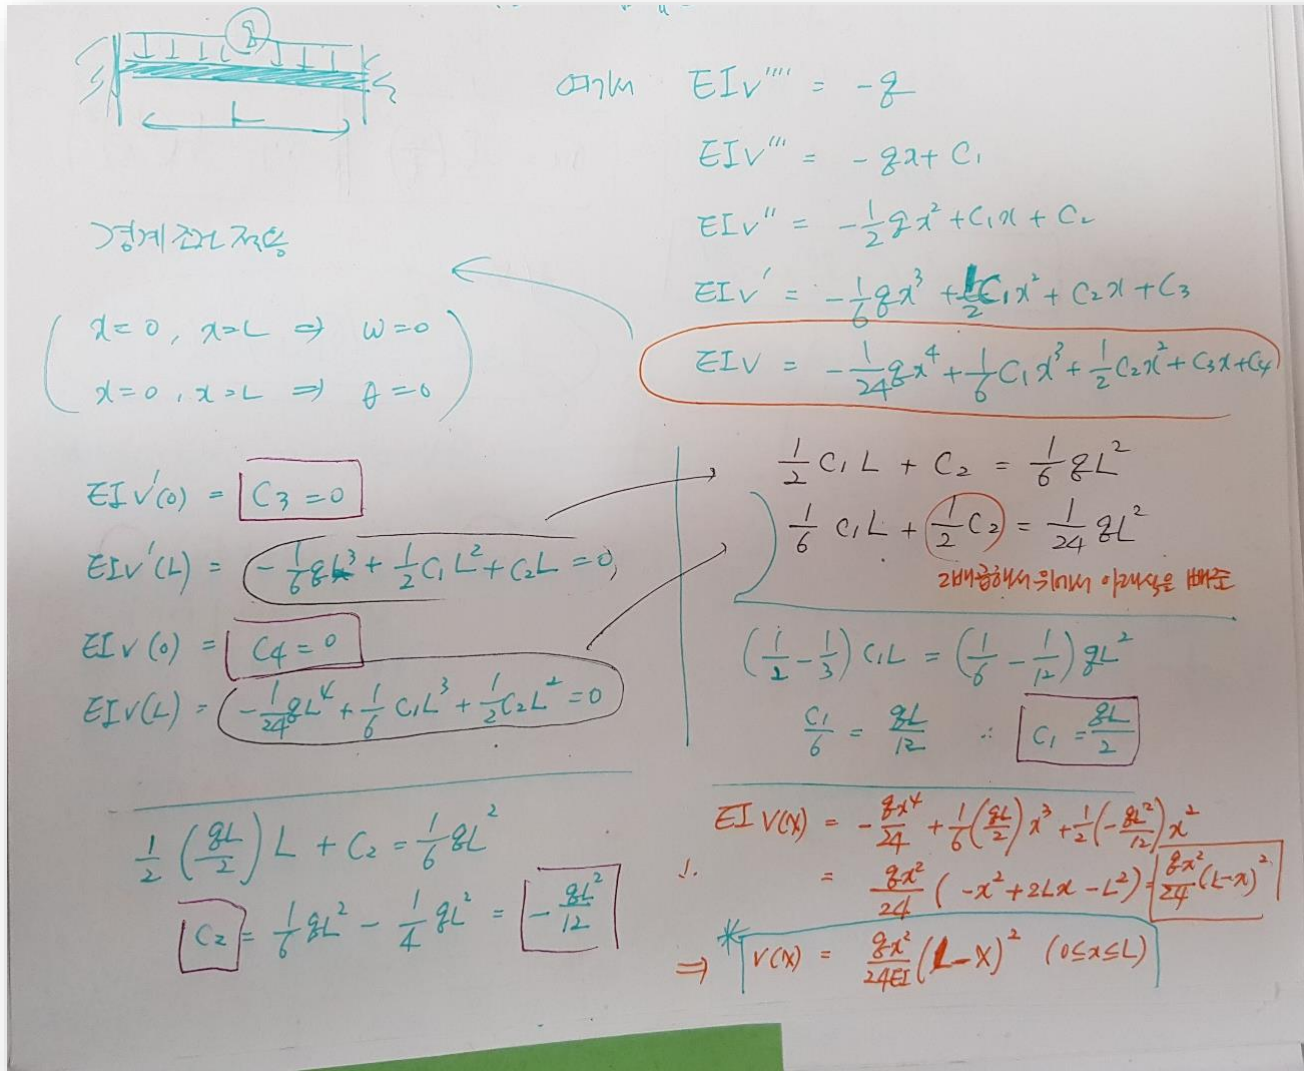 q
L
여기서 EIv'''' = -q
EIv''' = -qx + C₁
EIv'' = -1/2 qx² + C₁x + C₂
EIv' = -1/6 qx³ + 1/2 C₁x² + C₂x + C₃
EIv = -1/24 qx⁴ + 1/6 C₁x³ + 1/2 C₂x² + C₃x + C₄
경계조건 적용
x=0, x=L ⇒ w=0
x=0, x=L ⇒ θ=0
EIv'(0) = C₃=0
EIv'(L) = -1/6 qL³ + 1/2 C₁L² + C₂L = 0,
EIv(0) = C₄=0
EIv(L) = -1/24 qL⁴ + 1/6 C₁L³ + 1/2 C₂L² = 0
1/2 C₁L + C₂ = 1/6 qL²
1/6 C₁L + 1/2 C₂ = 1/24 qL²
2배곱해서 위에서 아래식을 빼준
(1/2 - 1/3) C₁L = (1/6 - 1/12) qL²
C₁/6 = qL/12 ∴ C₁ = qL/2
1/2 (qL/2) L + C₂ = 1/6 qL²
C₂ = 1/6 qL² - 1/4 qL² = -qL²/12
EI v(x) = -qx⁴/24 + 1/6 (qL/2) x³ + 1/2 (-qL²/12) x²
= qx²/24 (-x² + 2Lx - L²) = qx²/24 (L-x)²
⇒ * v(x) = qx²/24EI (L-x)² (0≤x≤L)